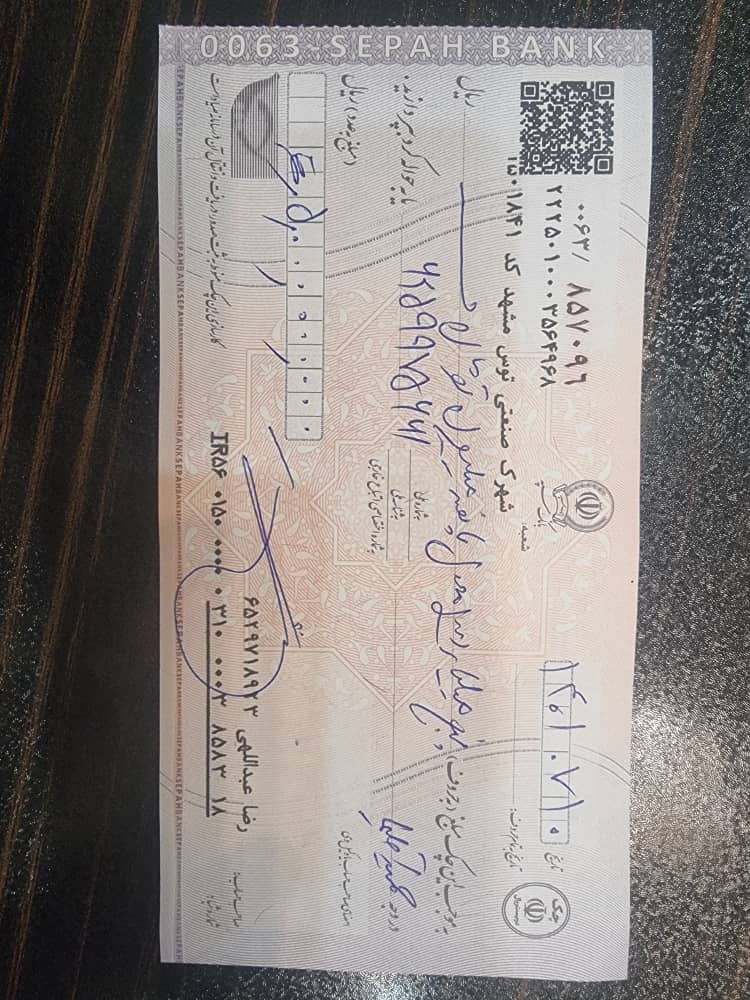 ۰۰۶۳/ ۸۵۷۰۹۶
۲۲۲۵۰۱۰۰۰۳۵۶۴۹۶۸
بانک سپه
شعبه:
شهرک صنعتی توس مشهد کد ۱۸۴۱
چک
تاریخ ۱۴۰۱ ۰۷ ۱۰
تاریخ به تمام حروف:
به موجب این چک مبلغ (به حروف) پنج میلیارد ریال معادل پانصد میلیون تومان ریال
در وجه
به شماره ملی
به شناسه ملی
به شماره اختصاصی اتباع خارجی
یا به حواله کرد بپردازید.
امضای صاحب حساب یا وکیل وی
(مبلغ به عدد) ریال
۵,۰۰۰,۰۰۰,۰۰۰
صاحب حساب: رضا عبداللهی ۶۵۲۹۷۱۸۹۲۳
شماره شبا: IR۵۶ ۰۱۵۰ ۰۰۰۰ ۰ ۳۱۰ ۰۰۰۳ ۸۵۸۳ ۱۸
کارسازی این چک منوط به ثبت صدور، دریافت و انتقال آن در سامانه صیاد است
SEPAHBANKSEPAHBANKSEPAHBANKSEPAHBANK
0063-SEPAH BANK